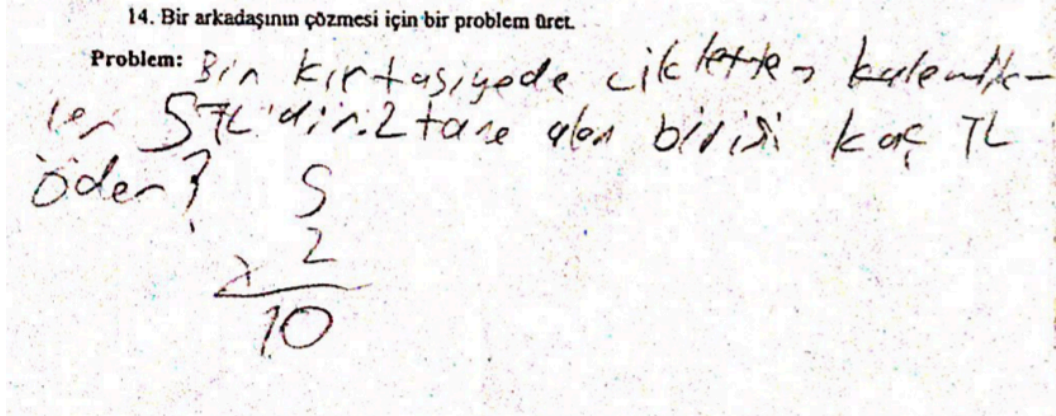 14. Bir arkadaşının çözmesi için bir problem üret.
Problem: Bir kırtasiyede kalemlik-
ler 5 TL'dir. 2 tane alan birisi kaç TL
öder?
5
x 2
10